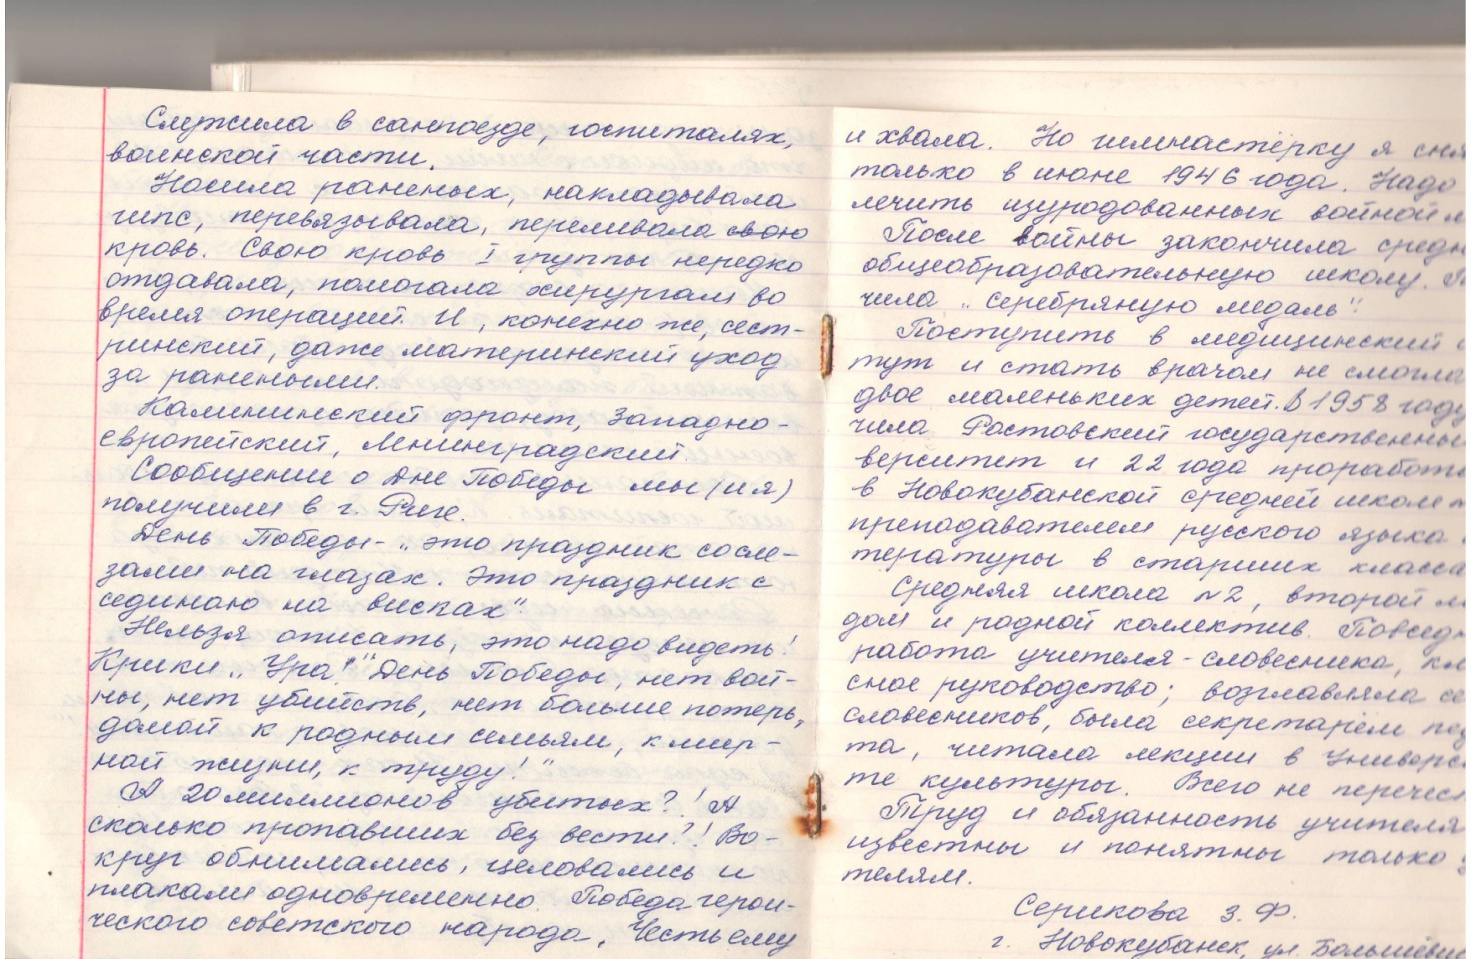 Служила в санпоезде, госпиталях,
воинской части.
Носила раненых, накладывала
гипс, перевязывала, переливала свою
кровь. Свою кровь I группы нередко
отдавала, помогала хирургам во
время операций. И, конечно же, сест-
ринский, даже материнский уход
за ранеными.
Калининский фронт, Западно-
европейский, Ленинградский
Сообщение о Дне Победы мы (и я)
получили в г. Риге.
День Победы - „это праздник со сле-
зами на глазах. Это праздник с
сединою на висках".
Нельзя описать, это надо видеть!
Крики „Ура!" "День Победы, нет вой-
ны, нет убийств, нет больше потерь,
домой к родным семьям, к мир-
ной жизни, к труду!"
А 20 миллионов убитых?! А
сколько пропавших без вести?! Во-
круг обнимались, целовались и
плакали одновременно. Победа герои-
ческого советского народа. Честь ему
и хвала. Но гимнастёрку я сня
только в июне 1946 года. Надо
лечить изуродованных войной
После войны закончила средн
общеобразовательную школу.
чила „серебряную медаль".
Поступить в медицинский
тут и стать врачом не смогла
двое маленьких детей. В 1958 году
чила Ростовский государственны
верситет и 22 года проработа
в Новокубанской средней школе
преподавателем русского языка
тературы в старших класса
Средняя школа №2, второй
дом и родной коллектив. Повсед
работа учителя-словесника, кл
сное руководство; возглавляла се
словесников, была секретарём пе
та, читала лекции в Универс
те культуры. Всего не перечес
Труд и обязанность учителя
известны и понятны только
телям.
Серикова З. Ф.
г. Новокубанск, ул. Большевис